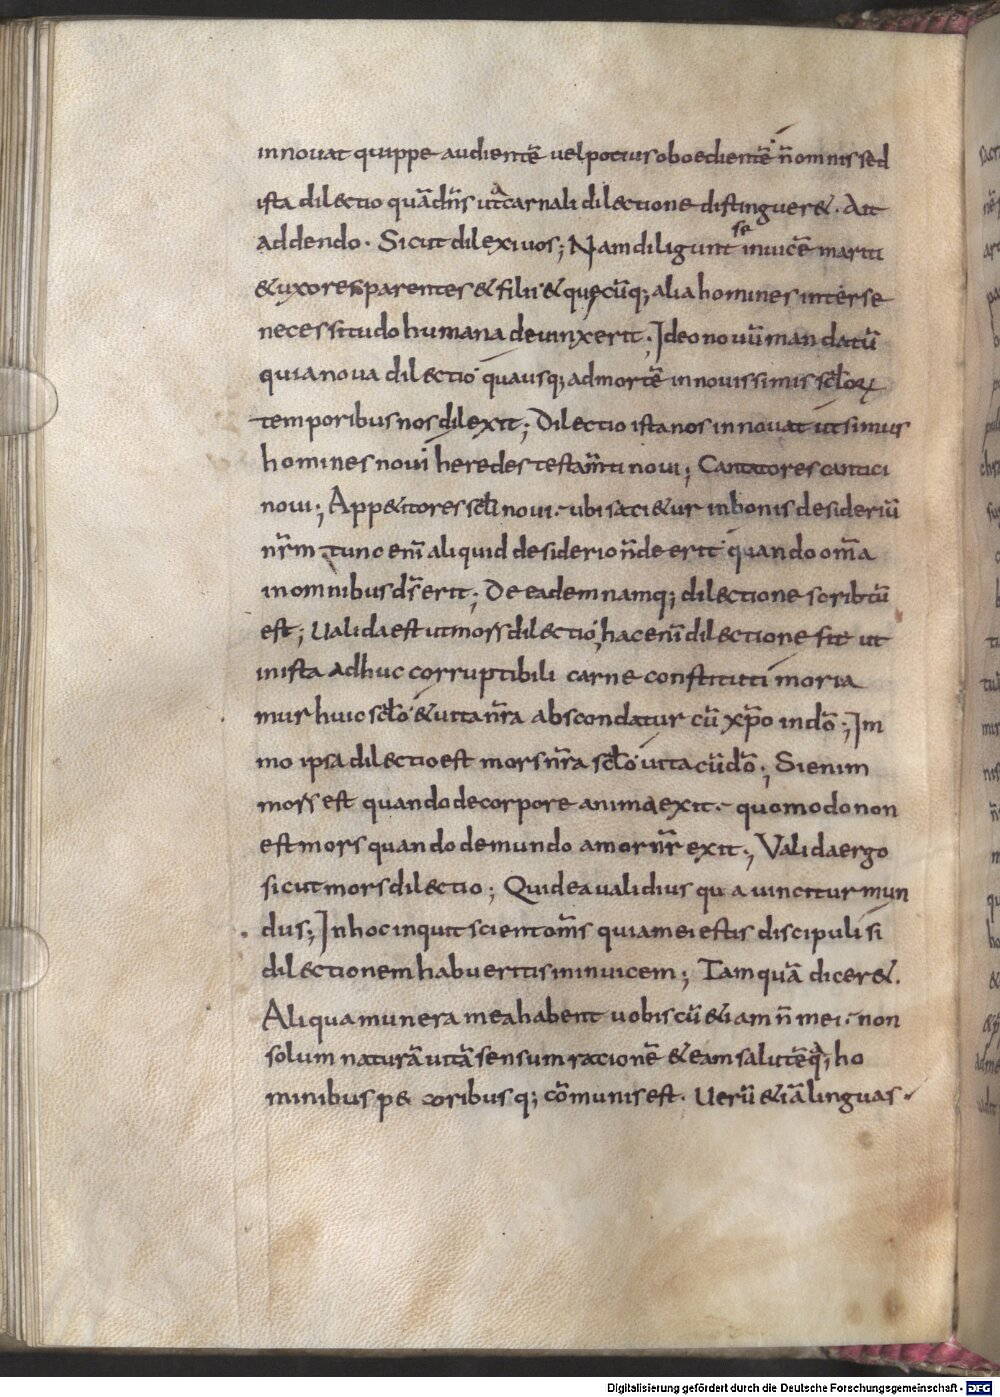 innouat quippe audientē uel potius oboedientē n̄ omnis sed
ista dilectio quā dn̄s ut a carnali dilectione distingueret. Ait
addendo. Sicut dilexi uos; Nam diligunt se inuicē mariti
& uxores parentes & filii & quęcūq; alia homines inter se
necessitudo humana deuinxerit; Ideo nouū mandatū
quia noua dilectio qua usq; ad mortē in nouissimis scl̄oꝝ
temporibus nos dilexit; Dilectio ista nos innouat ut simus
homines noui heredes testam̄ti noui; Cantatores cantici
noui; App&itores scl̄i noui. ubi saci&ur in bonis desideriū
nr̄m. tunc eni̅ aliquid desiderio n̄ deerit quando om̄a
in omnibus ds̄ erit; De eadem namq; dilectione scribtū
est; Ualida est ut mors dilectio, hac eni̅ dilectione fit ut
in ista adhuc corruptibili carne constituti moria
mur huic scl̄o & uita nr̄a abscondatur cū xp̄o in dō; Im
mo ipsa dilectio est mors nr̄a scl̄o uita cū dō; Si enim
mors est quando de corpore anima exit. quomodo non
est mors quando de mundo amor nr̄ exit; Valida ergo
sicut mors dilectio; Quid ea ualidius qua uincitur mun
dus; In hoc inquit scient om̄s quia mei estis discipuli si
dilectionem habueritis in inuicem; Tamquā diceret.
Aliqua munera mea habent uobiscū &iam n̄ mei. non
solum naturā uitā sensum racionē & eam salutē q̨; ho
minibus pe coribusq; cōmunis est. Uerū &iā linguas